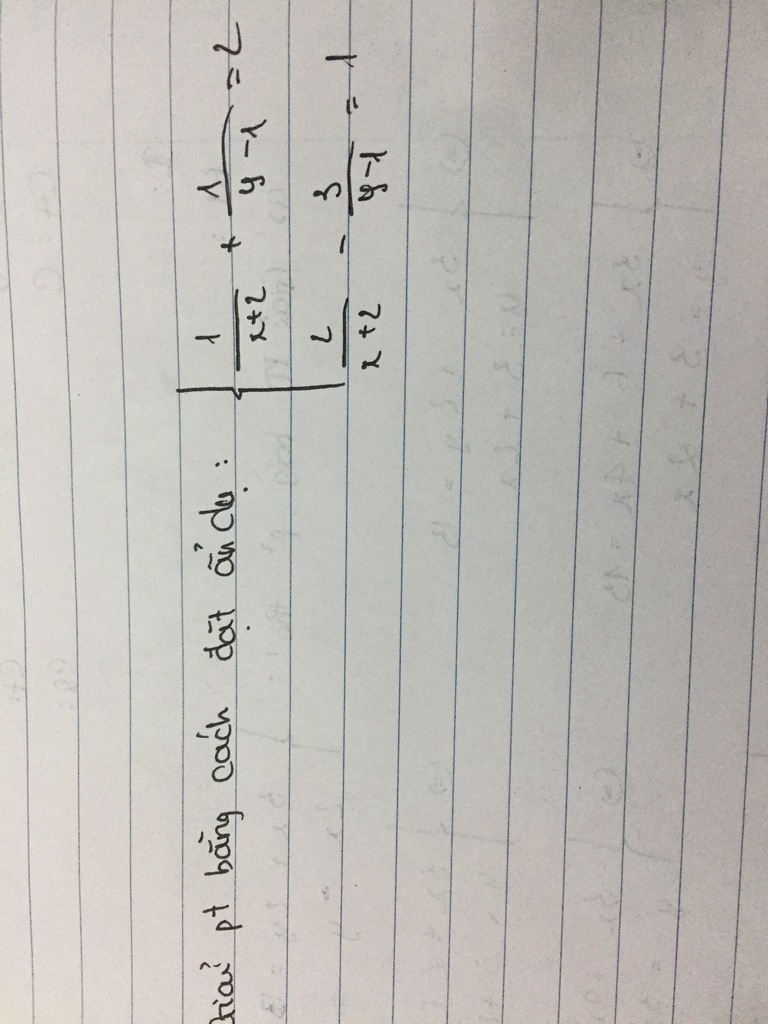 Giải pt bằng cách đặt ẩn dụ:
{ 1/(x+2) + 1/(y-1) = 2
2/(x+2) - 3/(y-1) = 1